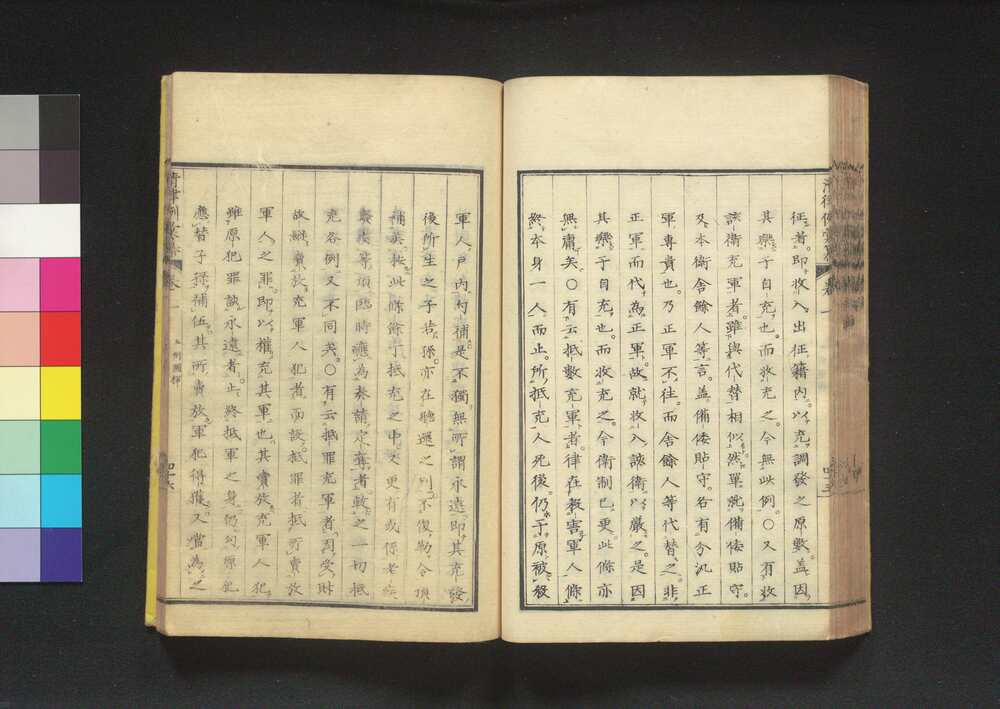 征者即收入出征籍内以充調發之原數蓋因
其樂于自充也而收充之今無此例○又有收
該衛充軍者雖與代替相似然單就備倭貼守
及本衛舍餘人等言蓋備倭貼守各有分汎正
軍專責也乃正軍不往而舍餘人等代替之非
正軍而代為正軍故就收入該衛以嚴之是因
其樂于自充也而收充之今衛制已更此條亦
無庸矣○有云抵數充軍者律在殺害軍人條
終本身一人而止所抵充人死後仍于原被殺
軍人戸内勾補是不獨無所謂永遠即其充發
後所生之子若孫亦在聽選之列不復勒令頂
補矣按此條餘丁抵充之中又更有或係老疾
等項臨時應為奏請定奪者較之一切抵
充各例又不同矣○有云抵罪充軍者因受財
故縱賣放充軍人犯者而設抵罪者抵所賣放
軍人之罪即以權充其軍也其賣放充軍人犯
雖原犯罪該永遠者止終抵軍之身仍勾原犯
應替子孫補伍其所賣放軍犯得獲又當為之
卷一
四十六